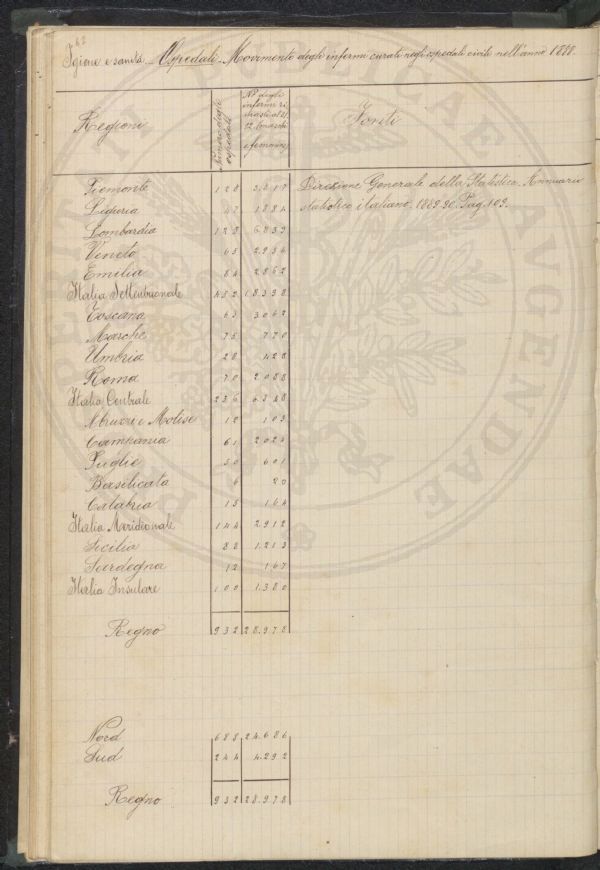 62
Igiene e sanità - Ospedali - Movimento degli infermi curati negli ospedali civili nell'anno 1888.
Regioni
Numero degli ospedali
N° degli
infermi ri
masti al 31
12 (maschi
e femmine)
Fonti
Piemonte 128 3.817 Direzione Generale della Statistica. Annuario
Liguria 47 1884 statistico italiano. 1889-90. Pag. 109.
Lombardia 128 6839
Veneto 65 2.936
Emilia 84 2862
Italia Settentrionale 452 18338
Toscana 63 3.062
Marche 75 770
Umbria 28 428
Roma 70 2.088
Italia Centrale 236 6348
Abruzzi e Molise 12 103
Campania 61 2024
Puglie 50 601
Basilicata 6 20
Calabria 15 164
Italia Meridionale 144 2.912
Sicilia 88 1.213
Sardegna 12 167
Italia Insulare 100 1.380
Regno 932 28.978
Nord 688 24.686
Sud 244 4.292
Regno 932 28.978
PUBLICAE AVGENDAE